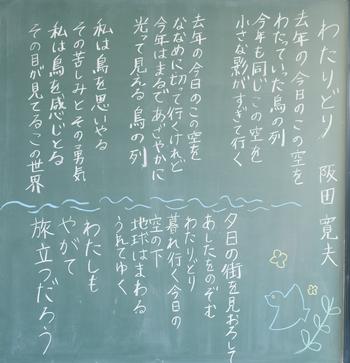 わたりどり 阪田 寛夫
去年の今日のこの空を
わたっていった鳥の列
今年も同じこの空を
小さな影がすぎて行く
去年の今日のこの空を
ななめに切って行くけれど
今年はまるであざやかに
光って見える鳥の列
私は鳥を思いやる
その苦しみとその勇気
私は鳥を感じとる
その目が見てるこの世界
夕日の街を見おろして
あしたをのぞむ
わたりどり
暮れ行く今日の
空の下
地球はまわる
うれてゆく
わたしも
やがて
旅立つだろう